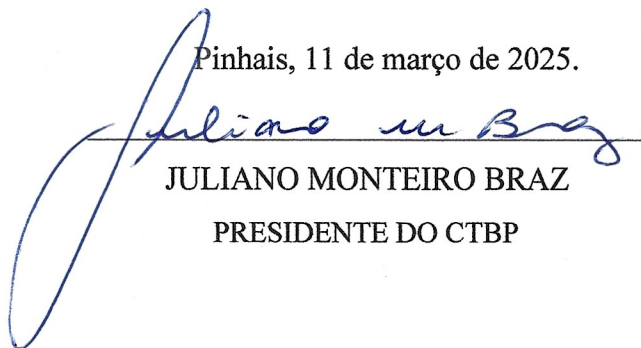 Pinhais, 11 de março de 2025.
Juliano M Braz
JULIANO MONTEIRO BRAZ
PRESIDENTE DO CTBP